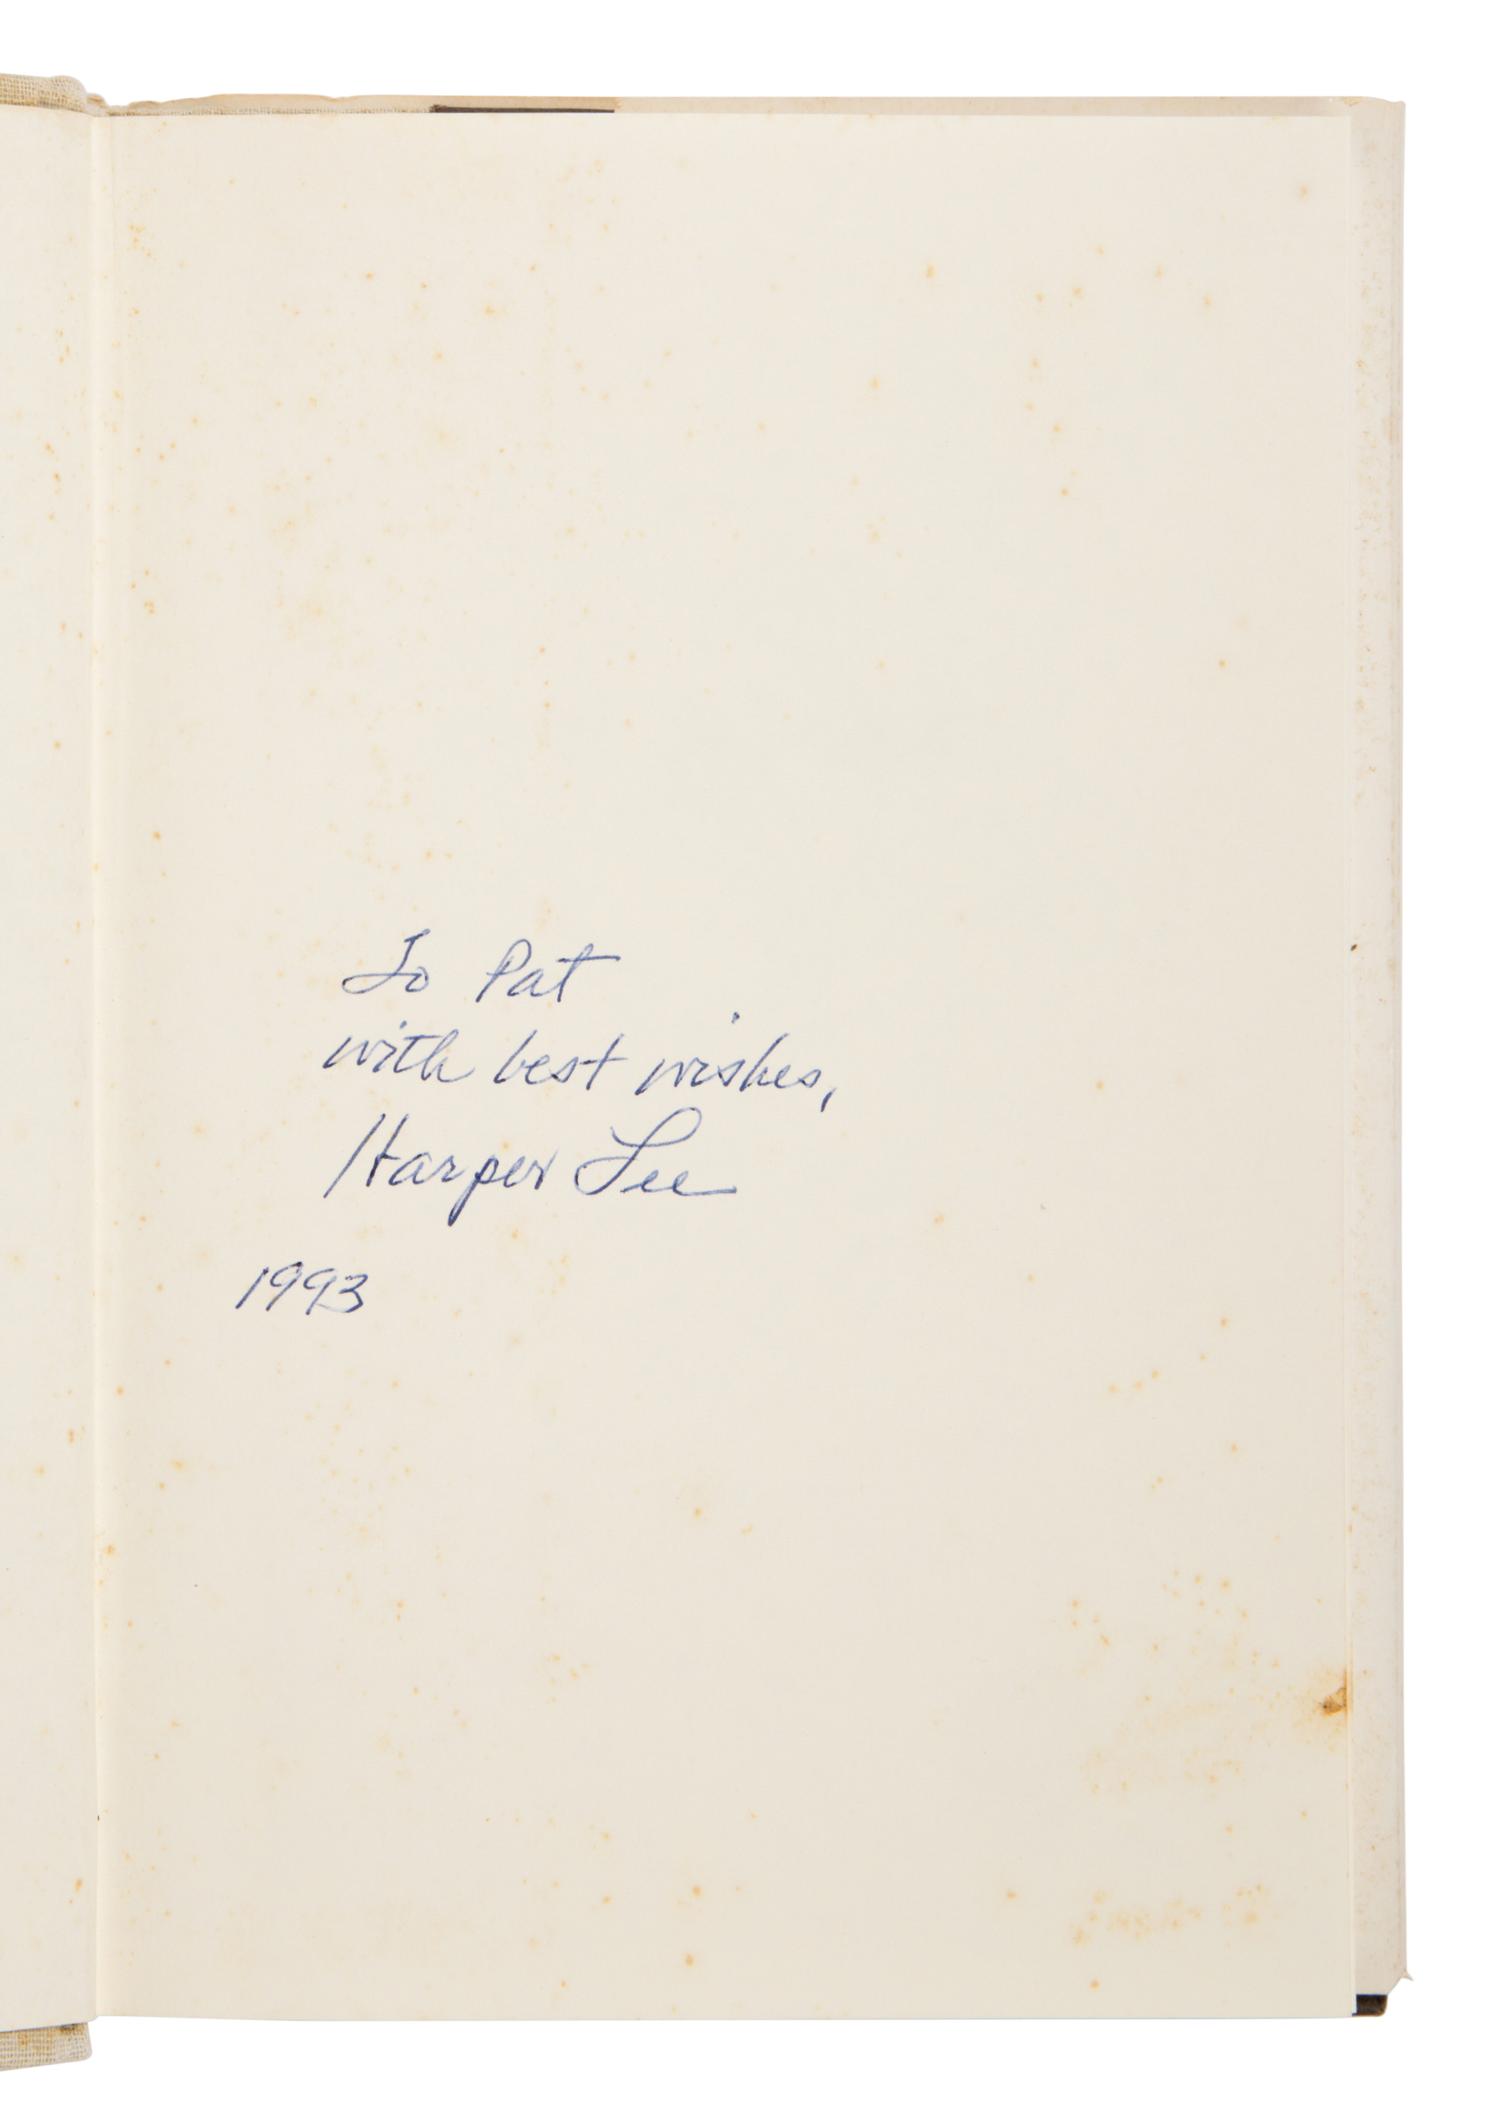 To Pat
with best wishes,
Harper Lee
1993